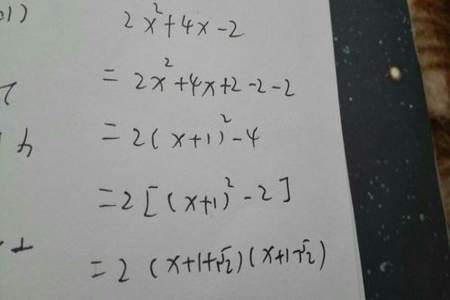 2x²+4x-2
= 2x²+4x+2-2-2
= 2(x+1)²-4
= 2[(x+1)²-2]
= 2(x+1+√2)(x+1-√2)